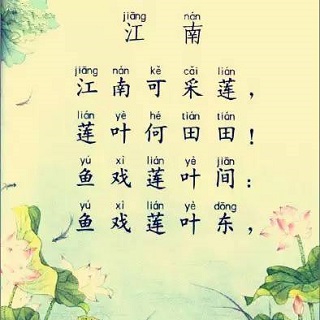 jiāng nán
江 南
jiāng nán kě cǎi lián
江 南 可 采 莲，
lián yè hé tián tián
莲 叶 何 田 田！
yú xì lián yè jiān
鱼 戏 莲 叶 间：
yú xì lián yè dōng
鱼 戏 莲 叶 东，